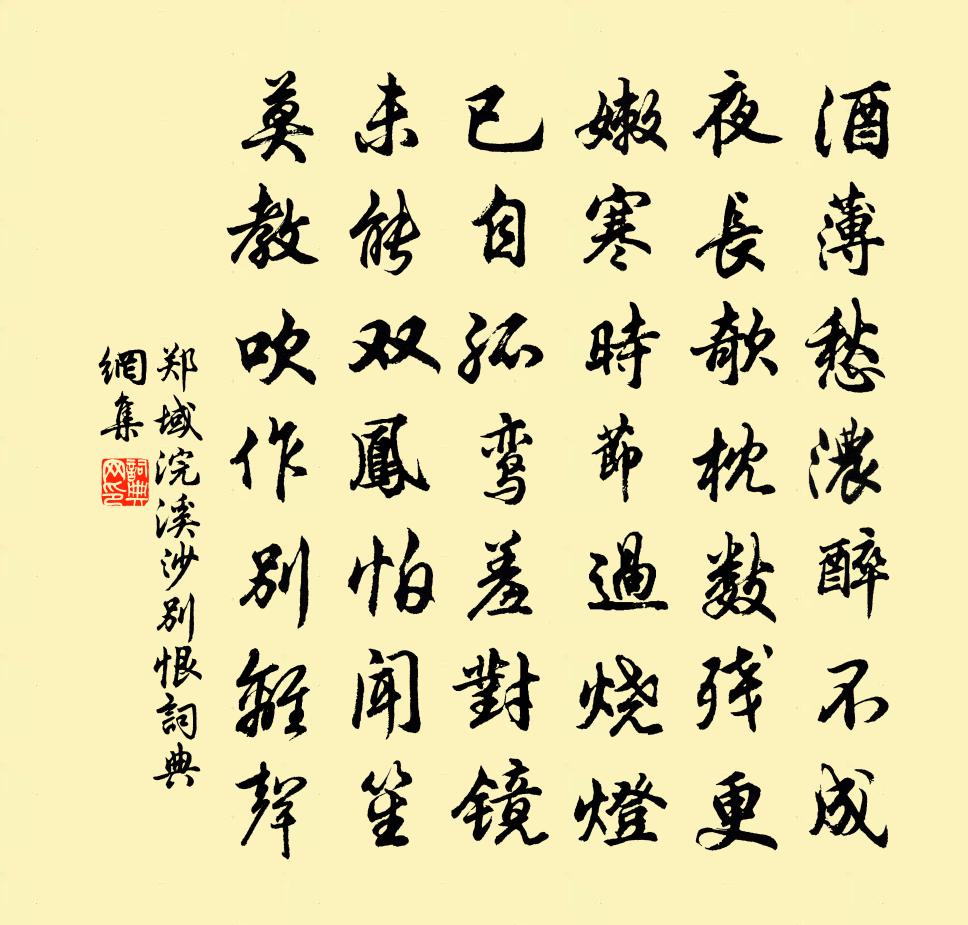 酒薄愁濃醉不成
夜長欹枕数残更
嫩寒時節過烧燈
已自孤鸾羞對镜
未能双鳳怕闻笙
莫教吹作别離聲
郑域浣溪沙别恨詞典
網集
詞典
网印